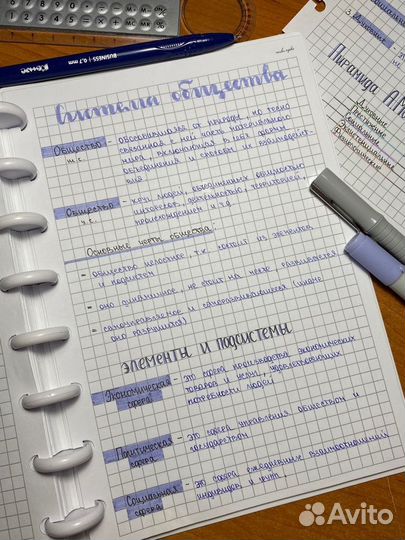 Система общества
Общество - обособившаяся от природы, но тесно
ш.с. связанная с ней часть материального
мира, включающая в себя формы
объединения и способы их взаимодейст-
вия
Общество - круг людей, объединённых общностью
у.с. интересов, деятельностью, территорией,
происхождением и т.д.
Основные черты общества:
= общество целостное, т.к. состоит из элементов
и подсистем
= оно динамичное, не стоит на месте, развивается
= самоуправляемое и саморазвивающееся (иначе
оно разрушится)
ЭЛЕМЕНТЫ И ПОДСИСТЕМЫ
Экономическая - это сфера производства экономических
сфера товаров и услуг, удовлетворяющих
потребности людей
Политическая - это сфера управления обществом и
сфера государством
Социальная - это сфера ежедневных взаимоотношений
сфера индивидов и групп.
BUSINESS 0,7 mm
Пирамида А.М
Avito